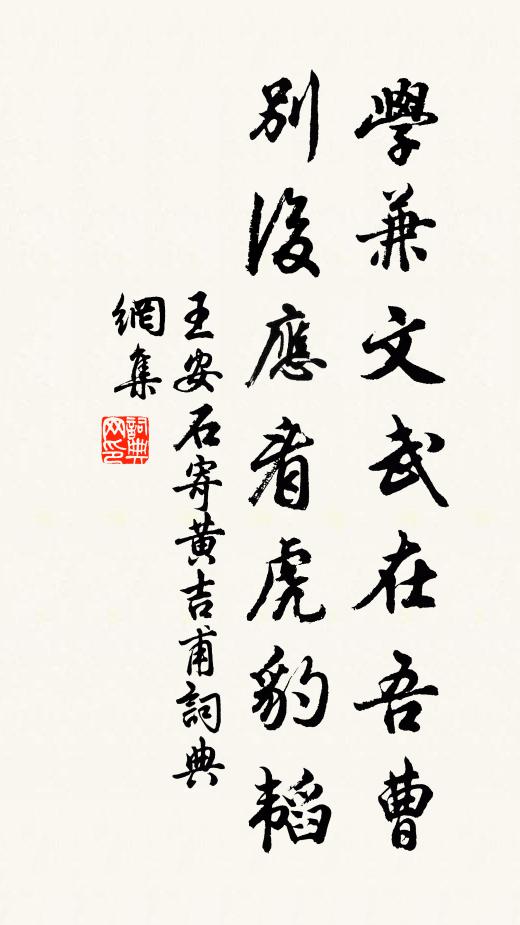 學兼文武在吾曹
別後應看虎豹韜
王安石寄黄吉甫詞典
網集
詞典
网印